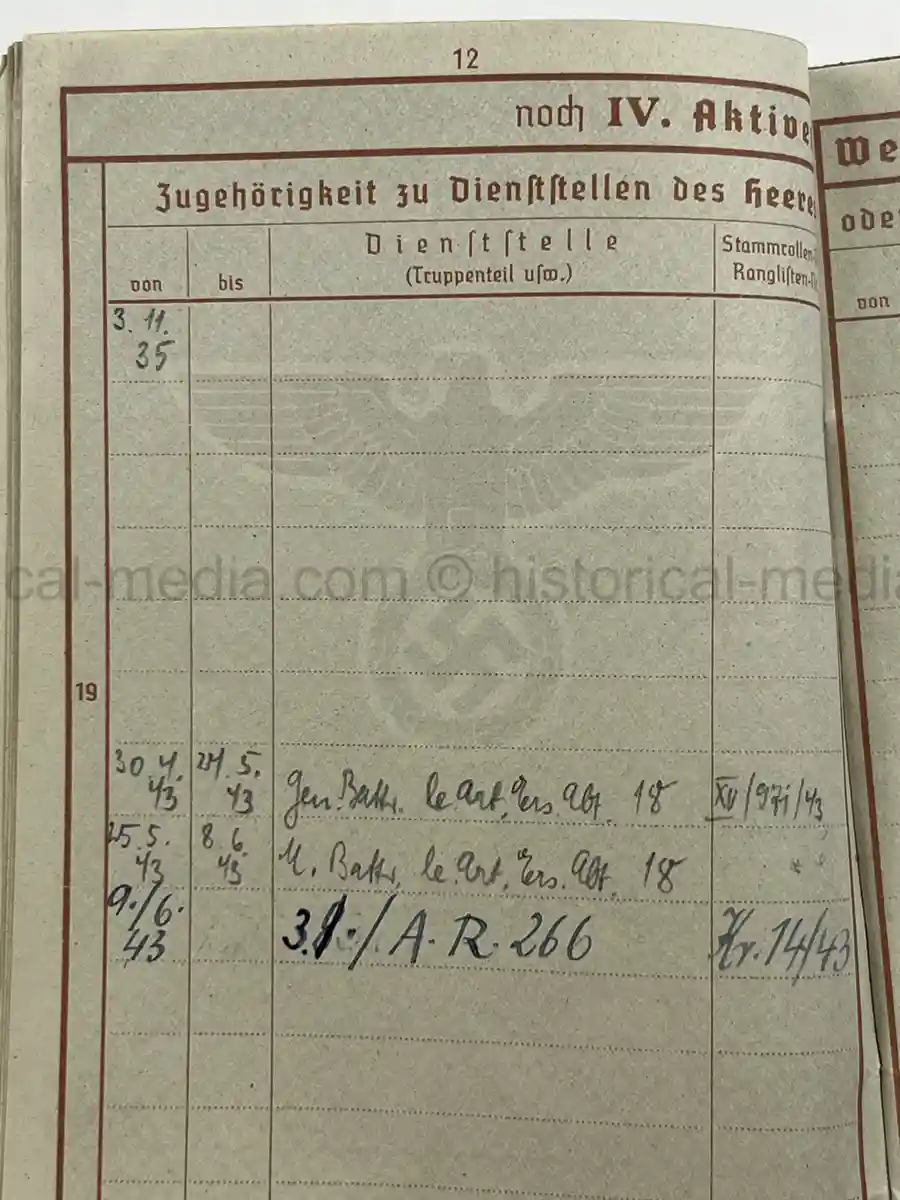 12
noch IV. Aktive
Zugehörigkeit zu Dienststellen des Heeres
Dienststelle
(Truppenteil usw.)
Stammrollen
Ranglisten-
von
bis
3. 11.
35
19
30. 4.
43
24. 5.
43
Gen. Battr. le Art. Ers. Abt. 18
XV/971/43
25. 5.
43
8. 6.
43
M. Battr. le. Art. Ers. Abt. 18
9./6.
43
3./A. R. 266
Kr. 14/43
We
ode
von
cal-media.com © historical-media